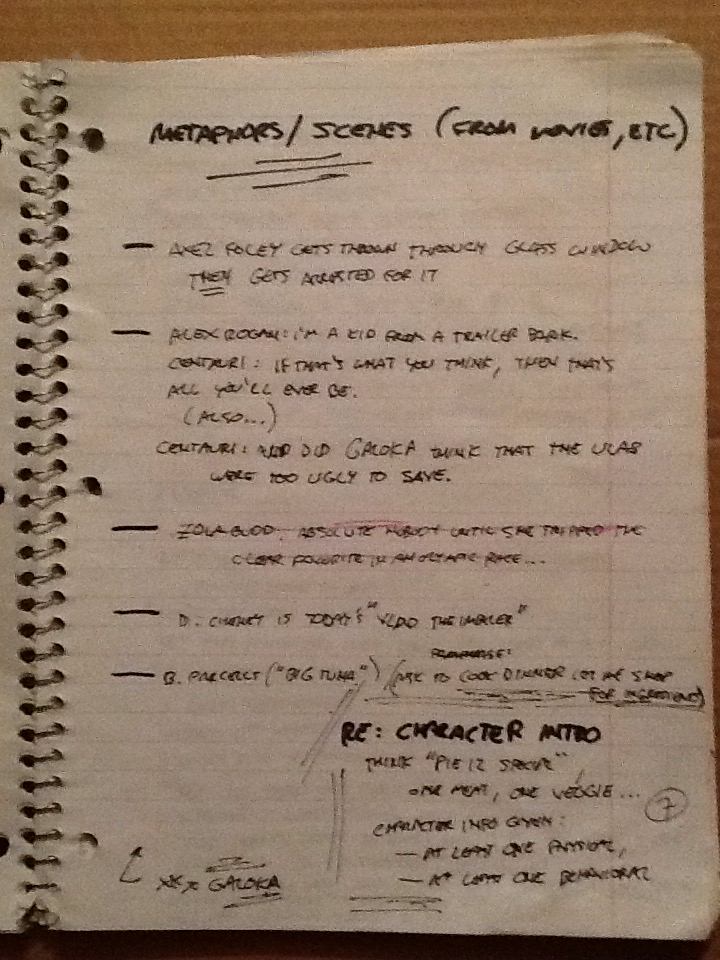 METAPHORS/SCENES (FROM MOVIES, ETC)
— AXEL FOLEY GETS THROWN THROUGH GLASS WINDOW
THEN GETS ARRESTED FOR IT
— ALEX ROGAN: I'M A KID FROM A TRAILER PARK.
CENTAURI: IF THAT'S WHAT YOU THINK, THEN THAT'S
ALL YOU'LL EVER BE.
(ALSO...)
CENTAURI: AND DID GALOKA THINK THAT THE ULAS
WERE TOO UGLY TO SAVE.
— ZOLA BUDD: ABSOLUTE NOBODY UNTIL SHE TRIPPED THE
CLEAR FAVORITE IN AN OLYMPIC RACE...
— D. CHENEY IS TODAY'S "VLAD THE IMPALER"
PARAPHRASE:
— B. PARCELLS ("BIG TUNA") (ASK TO COOK DINNER LET ME SHOP
FOR INGREDIENTS)
RE: CHARACTER INTRO
THINK "PIE 12 SPECIAL",
ONE MEAT, ONE VEGGIE...
7
CHARACTER INFO GIVEN:
— AT LEAST ONE PHYSICAL,
— AT LEAST ONE BEHAVIORAL
GALOKA